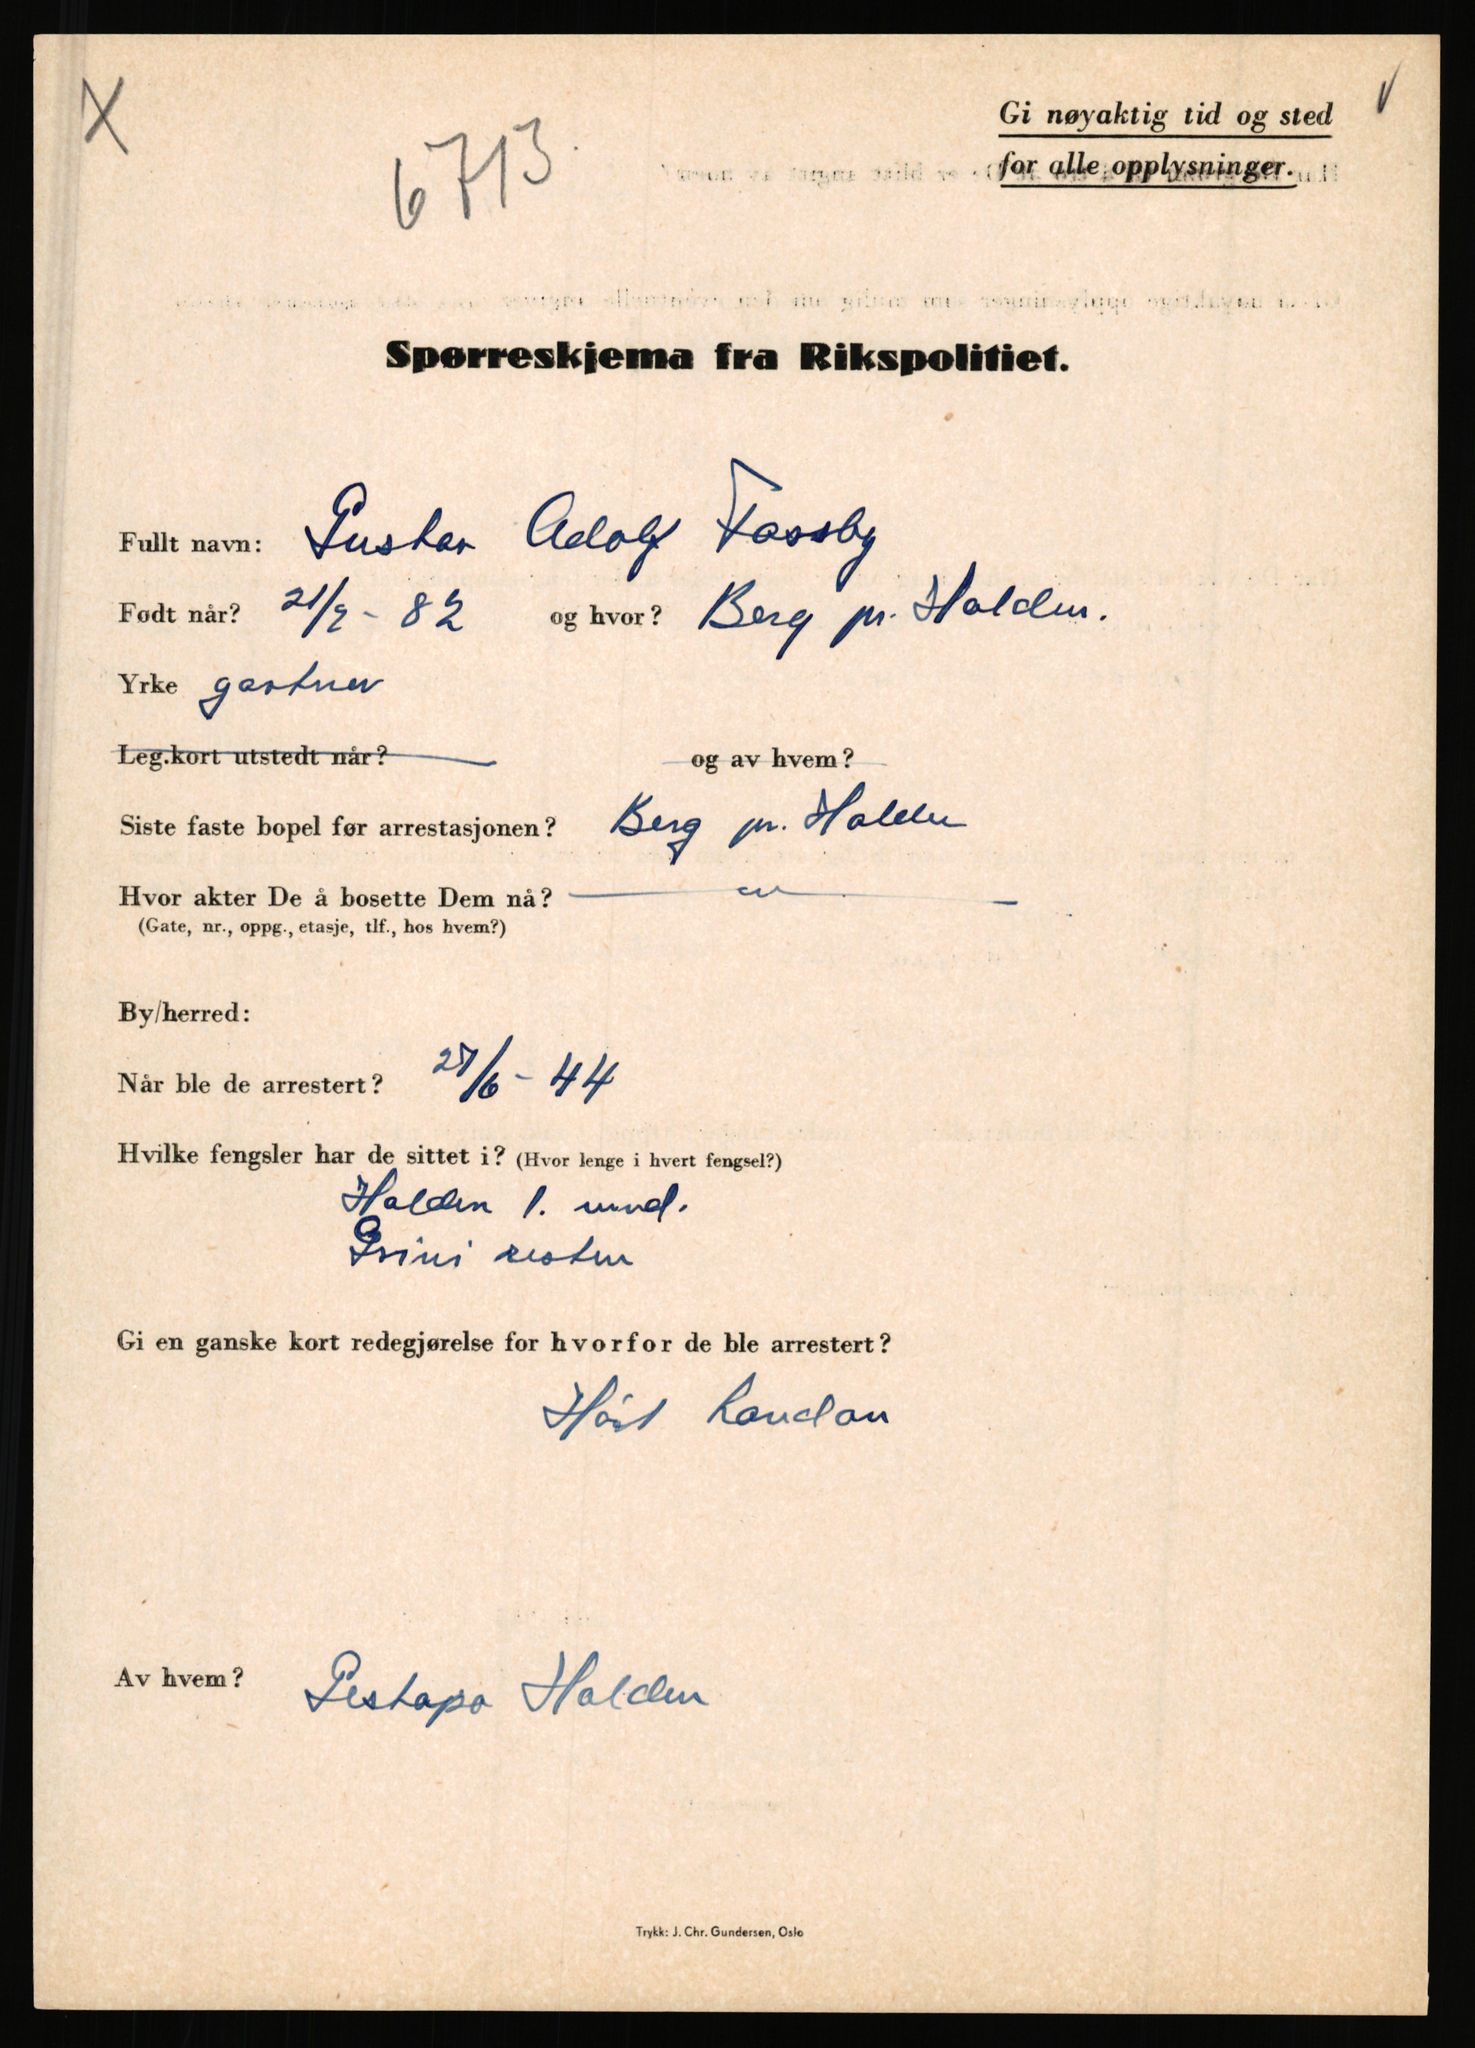 Gi nøyaktig tid og sted
for alle opplysninger.
6713
Spørreskjema fra Rikspolitiet.
Fullt navn: Gustav Adolf Fossby
Født når? 21/2 - 82 og hvor? Berg pr. Halden.
Yrke gartner
Leg.kort utstedt når? og av hvem?
Siste faste bopel før arrestasjonen? Berg pr. Halden
Hvor akter De å bosette Dem nå? — " —
(Gate, nr., oppg., etasje, tlf., hos hvem?)
By/herred:
Når ble de arrestert? 27/6 - 44
Hvilke fengsler har de sittet i? (Hvor lenge i hvert fengsel?)
Halden 1. mnd.
Grini resten
Gi en ganske kort redegjørelse for hvorfor de ble arrestert?
Hørt London
Av hvem? Gestapo Halden
Trykk: J. Chr. Gundersen, Oslo